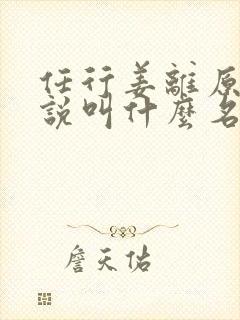 任行姜離原
說叫什麼名
詹天佑